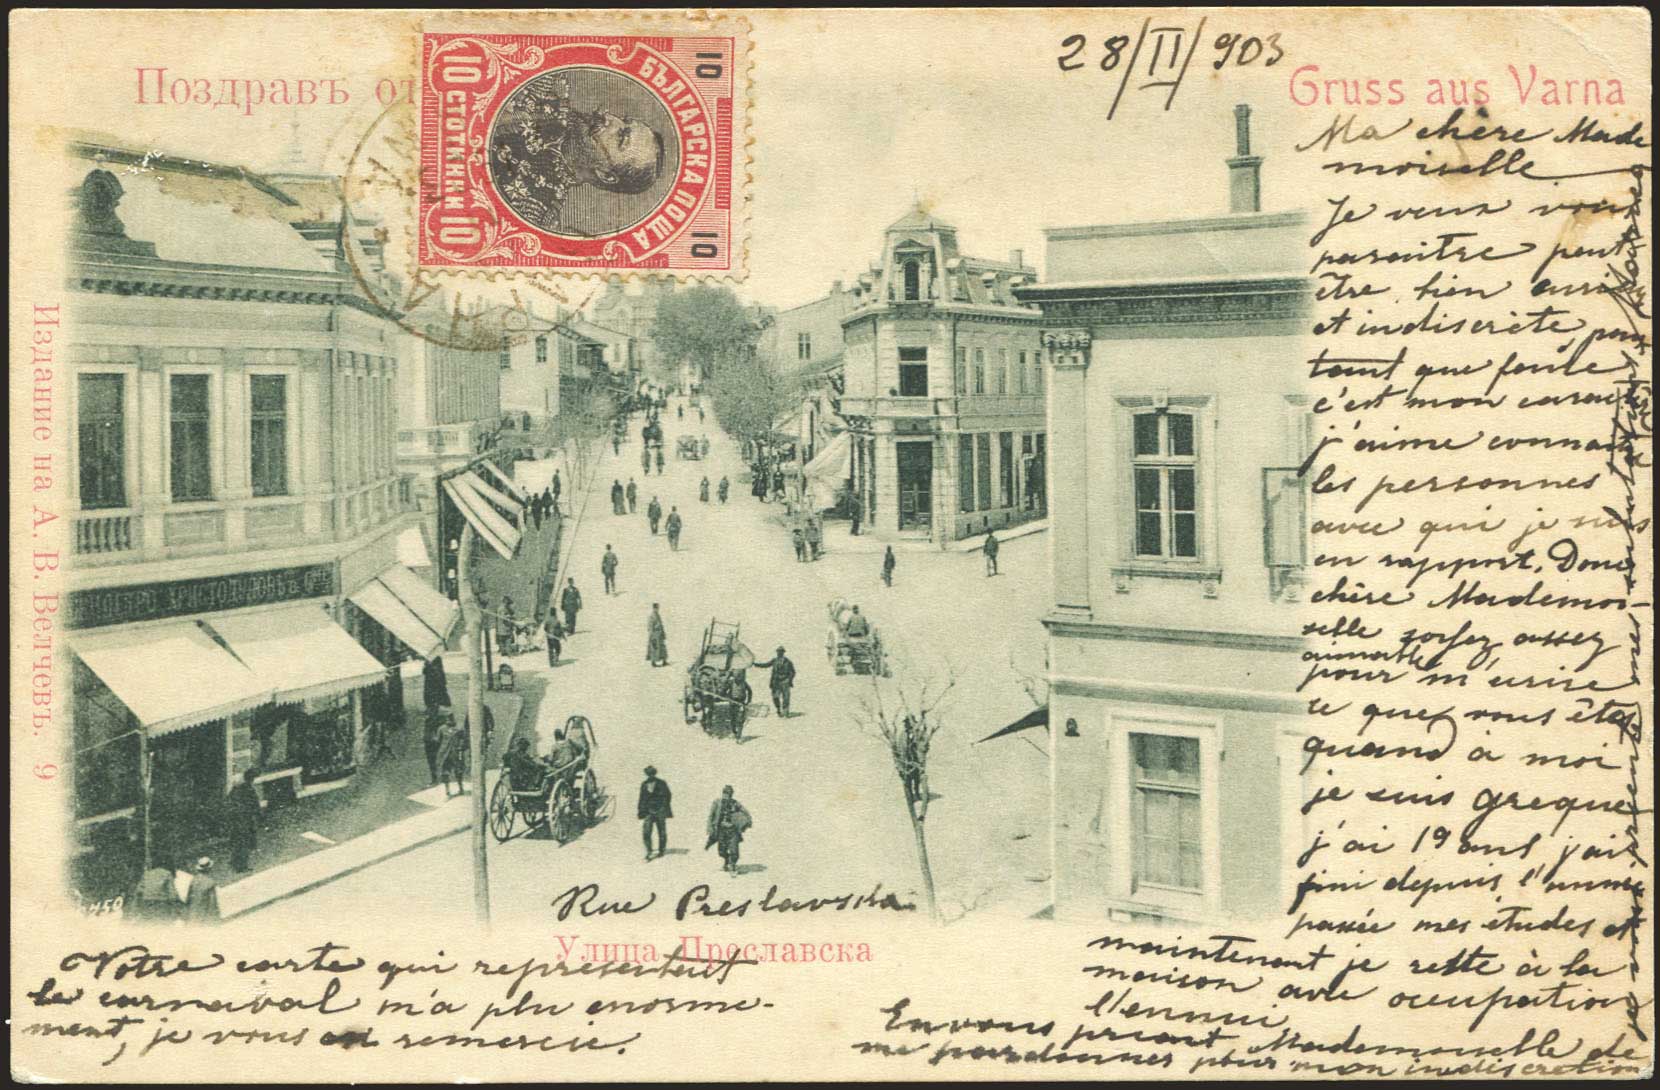 Поздравъ от
БЪЛГАРСКА ПОЩА
10 СТОТИНКИ 10
10 10
28/II/903
Gruss aus Varna
Ma chère Made
moiselle
Je veux vous
paraitre peut
être bien curi
et indiscrète, pour
tant que faute
c'est mon caract
j'aime connait
les personnes
avec qui je suis
en rapport. Donc
chère Mademoi-
selle soyez assez
aimable
pour m'écrire
ce que vous êtes
quand à moi
je suis greque
j'ai 19 ans, j'ai
fini depuis l'année
passée mes études et
maintenant je reste à la
maison avec occupation
l'ennui
En vous priant Mademoiselle de
me pardonner pour mon indiscretion
je vous présente mes
Издание на А. В. Велчевъ. 9
ХРИСТОДУЛОВЪ
450
Rue Preslavska
Улица Преславска
Votre carte qui representait
le carnaval m'a plu enorme-
ment, je vous en remercie.